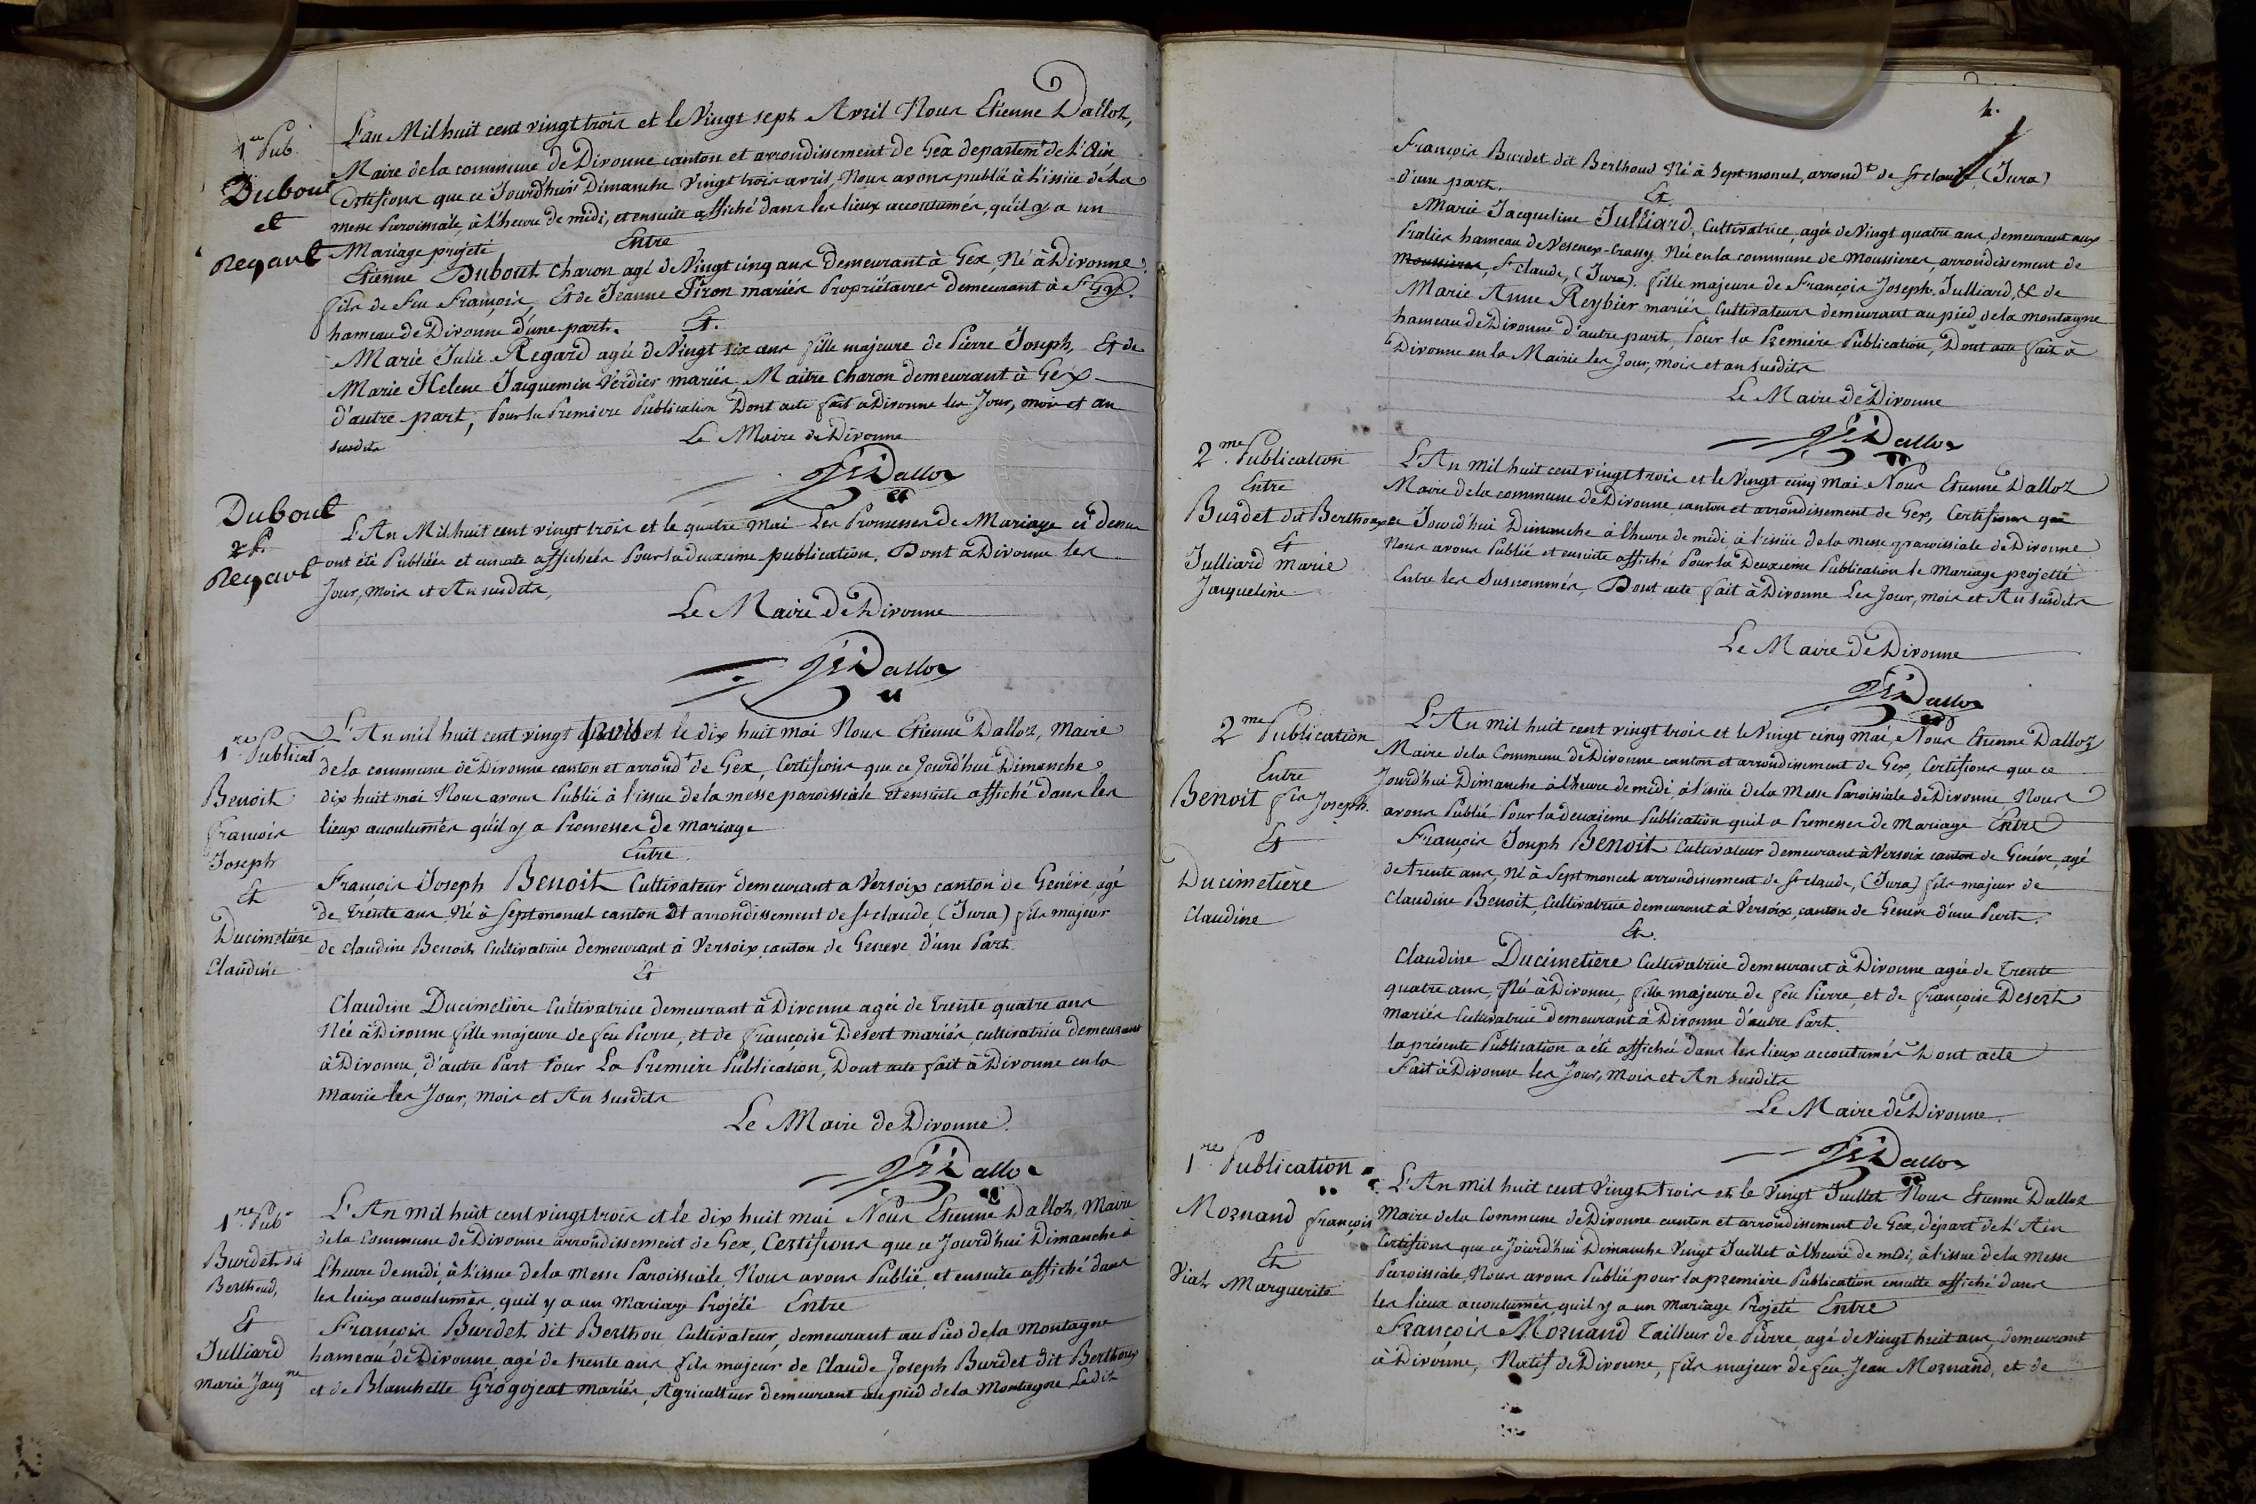 1re Pub.
Dubout
et
Regard
L'an Mil huit cent vingt trois et le Vingt sept Avril Nous Etienne Dalloz,
Maire de la commune de Divonne canton et arrondissement de Gex departemt de l'Ain
Certifions que ce Jourd'hui Dimanche Vingt trois avril, Nous avons publié à l'issüe de la
messe Paroissiale, à l'heure de midi, et ensuite affiché dans les lieux accoutumés, qu'il y a un
Mariage projeté
Entre
Etienne Dubout Charon agé de Vingt cinq ans Demeurant à Gex, Né à Divonne
fils de Feu François, Et de Jeanne Piron mariés Propriétaires Demeurant à
hameau de Divonne d'une part.
Et.
Marie Julie Regard agée de Vingt six ans fille majeure de Pierre Joseph, Et de
Marie Helene Jacquemin Verdier mariés, Maitre Charon demeurant à Gex
d'autre part, Pour la Premiere Publication Dont acte fait à Divonne les Jour, mois et an
susdits
Le Maire de Divonne
Dalloz
Dubout
2 P.
Regard
L'An Mil huit cent vingt trois et le quatre Mai Les Promesses de Mariage ci dessus
ont été Publiées et ensuite affichées Pour la deuxieme publication. Dont à Divonne les
Jour, Mois et An susdits,
Le Maire de Divonne
Dalloz
1re Publicat
Benoit
François
Joseph
Et
Ducimetière
Claudine
L'An mil huit cent vingt trois et le dix huit mai Nous Etienne Dalloz, Maire
de la commune de Divonne canton et arrondt de Gex, Certifions que ce Jourd'hui Dimanche
dix huit mai Nous avons Publié à l'issue de la messe paroissiale et ensuite affiché dans les
lieux accoutumés qu'il y a Promesses de Mariage
Entre
François Joseph Benoit Cultivateur demeurant a Versoix canton de Genève, agé
de Trente ans, Né à Septmoncel canton et arrondissement de St claude, (Jura) fils majeur
de claudine Benoit Cultivatrice demeurant à Versoix, canton de Geneve, d'une Part.
Et
Claudine Ducimetière Cultivatrice demeurant à Divonne agée de trente quatre ans
Née à Divonne fille majeure de feu Pierre, et de Françoise Desert mariés, cultivatrice demeurant
à Divonne, d'autre Part Pour La Premiere Publication, Dont acte fait à Divonne en la
Mairie les Jour, Mois et An susdits
Le Maire de Divonne.
Dalloz
1re Pubon
Burdet dit
Berthoud,
Et
Julliard
Marie Jacqne
L'An mil huit cent vingt trois et le dix huit mai Nous Etienne Dalloz, Maire
de la commune de Divonne arrondissement de Gex, Certifions que ce Jourd'hui Dimanche à
l'heure de midi, à l'issue de la messe Paroissiale, Nous avons Publié, et ensuite affiché dans
les lieux accoutumés, qu'il y a un Mariage Projété Entre
François Burdet dit Berthou Cultivateur, demeurant au Pied de la Montagne
hameau de Divonne, agé de trente ans fils majeur de Claude Joseph Burdet dit Berthoux
et de Blanchette Grogojeat mariés, Agriculteur demeurant au pied de la Montagne, Ledit
François Burdet dit Berthoud Né à Septmoncel, arrondt de St claude, (Jura)
d'une part.
Et.
Marie Jacqueline Julliard, Cultivatrice, agée de Vingt quatre ans, demeurant aux
Pralies hameau de Vesenex-Crassy Née en la commune de Moussieres, arrondissement de
Moussieres, St Claude, (Jura). fille majeure de François Joseph Julliard, & de
Marie Anne Reybier mariés, Cultivateurs demeurant au pied de la montagne
hameau de Divonne d'autre part, Pour la Premiere Publication, Dont acte fait à
Divonne en la Mairie les Jour, mois et an susdits
Le Maire de Divonne
Dalloz
2me Publication
Entre
Burdet dit Berthoux
Et
Julliard Marie
Jacqueline
L'An mil huit cent vingt trois et le Vingt cinq Mai Nous Etienne Dalloz
Maire de la commune de Divonne canton et arrondissement de Gex, Certifions que
ce Jourd'hui Dimanche à l'heure de midi à l'issüe de la messe paroissiale de Divonne
Nous avons Publié et ensuite affiché Pour la Deuxieme Publication le Mariage projetté
Entre les Susnommés, Dont acte fait à Divonne Les Jour, mois et An susdits
Le Maire de Divonne
Dalloz
2me Publication
Entre
Benoit fçs Joseph.
Et
Ducimetière
Claudine
L'An mil huit cent vingt trois et le Vingt cinq Mai, Nous Etienne Dalloz
Maire de la Commune de Divonne canton et arrondissement de Gex, Certifions que ce
Jourd'hui Dimanche à l'heure de midi, à l'issüe de la Messe Paroissiale de Divonne Nous
avons Publié Pour la deuxieme Publication qu'il a Promesses de Mariage Entre
François Joseph Benoit Cultivateur demeurant à Versoix canton de Genéve, agé
de trente ans, Né à Septmoncel arrondissement de St claude, (Jura) fils majeur de
Claudine Benoit, Cultivatrice demeurant à Versoix, canton de Geneve d'une Part.
Et.
Claudine Ducimetière Cultivatrice demeurant à Divonne agée de Trente
quatre ans, Né à Divonne, fille majeure de feu Pierre, et de françoise Desert
mariés Cultivatrice demeurant à Divonne d'autre Part.
la présente Publication a été affichée dans les lieux accoutumés Dont acte
Fait à Divonne les Jour, mois et An susdits
Le Maire de Divonne.
Dalloz
1re Publication
Mornand françois
Et
Viat Marguerite
L'An mil huit cent Vingt trois et le Vingt Juillet Nous Etienne Dalloz
Maire de la Commune de Divonne canton et arrondissement de Gex, départt de l'Ain
Certifions que ce Jourd'hui Dimanche Vingt Juillet à l'heure de midi, à l'issue de la Messe
Paroissiale, Nous avons Publié pour la premiére Publication ensuite affiché dans
les lieux accoutumés, qu'il y a un Mariage Projeté Entre
François Mornand Tailleur de Pierre, agé de vingt huit ans, demeurant
à Divonne, Natif de Divonne, fils majeur de feu Jean Mornand, et de